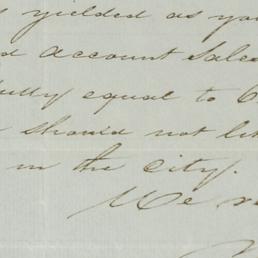 yielded as you
account Sales
fully equal to
should not let
in the city.
We